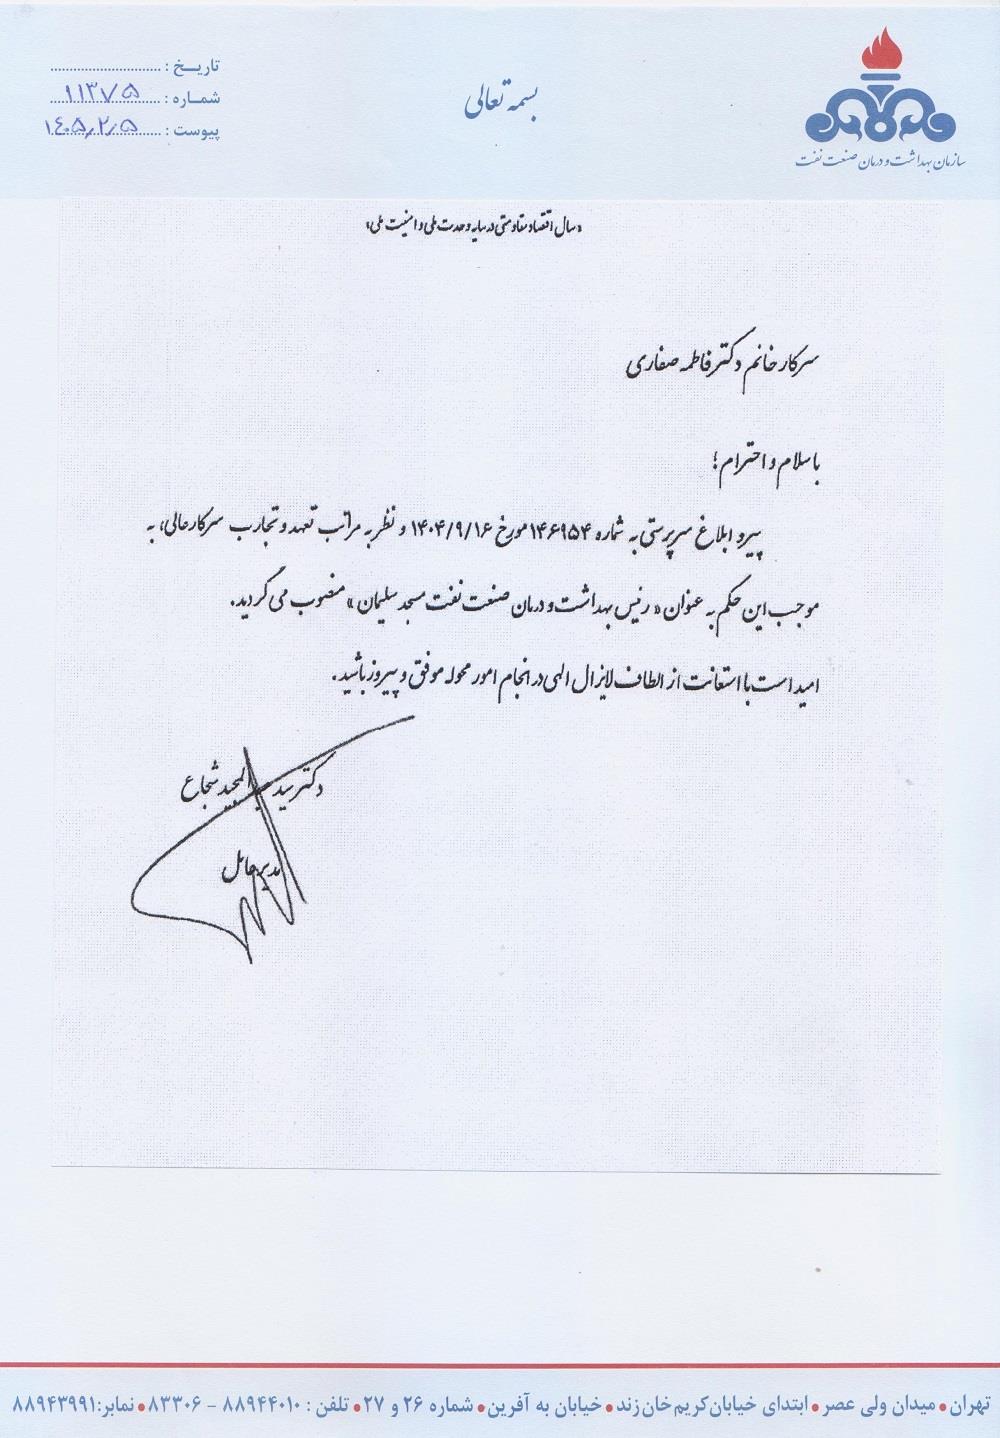 بسمه تعالی
تاریـخ :
شمـاره : ۱۱۳۷۵
پیوست : ۱٤۰۵٫۲٫۵
سازمان بهداشت و درمان صنعت نفت
«سال اقتصاد مقاومتی در سایه وحدت ملی و امنیت ملی»
سرکار خانم دکتر فاطمه صفاری
با سلام و احترام؛
پیرو ابلاغ سرپرستی به شماره ۱۴۶۹۵۴ مورخ ۱۴۰۴/۹/۱۶ و نظر به مراتب تعهد و تجارب سرکارعالی، به
موجب این حکم به عنوان « رئیس بهداشت و درمان صنعت نفت مسجد سلیمان » منصوب می گردید.
امید است با استعانت از الطاف لایزال الهی در انجام امور محوله موفق و پیروز باشید.
دکتر سید عبدالمجید شجاع
مدیرعامل
تهران • میدان ولی عصر • ابتدای خیابان کریم خان زند • خیابان به آفرین • شماره ۲۶ و ۲۷ • تلفن : ۸۸۹۴۴۰۱۰ - ۸۳۳۰۶ • نمابر:۸۸۹۴۳۹۹۱